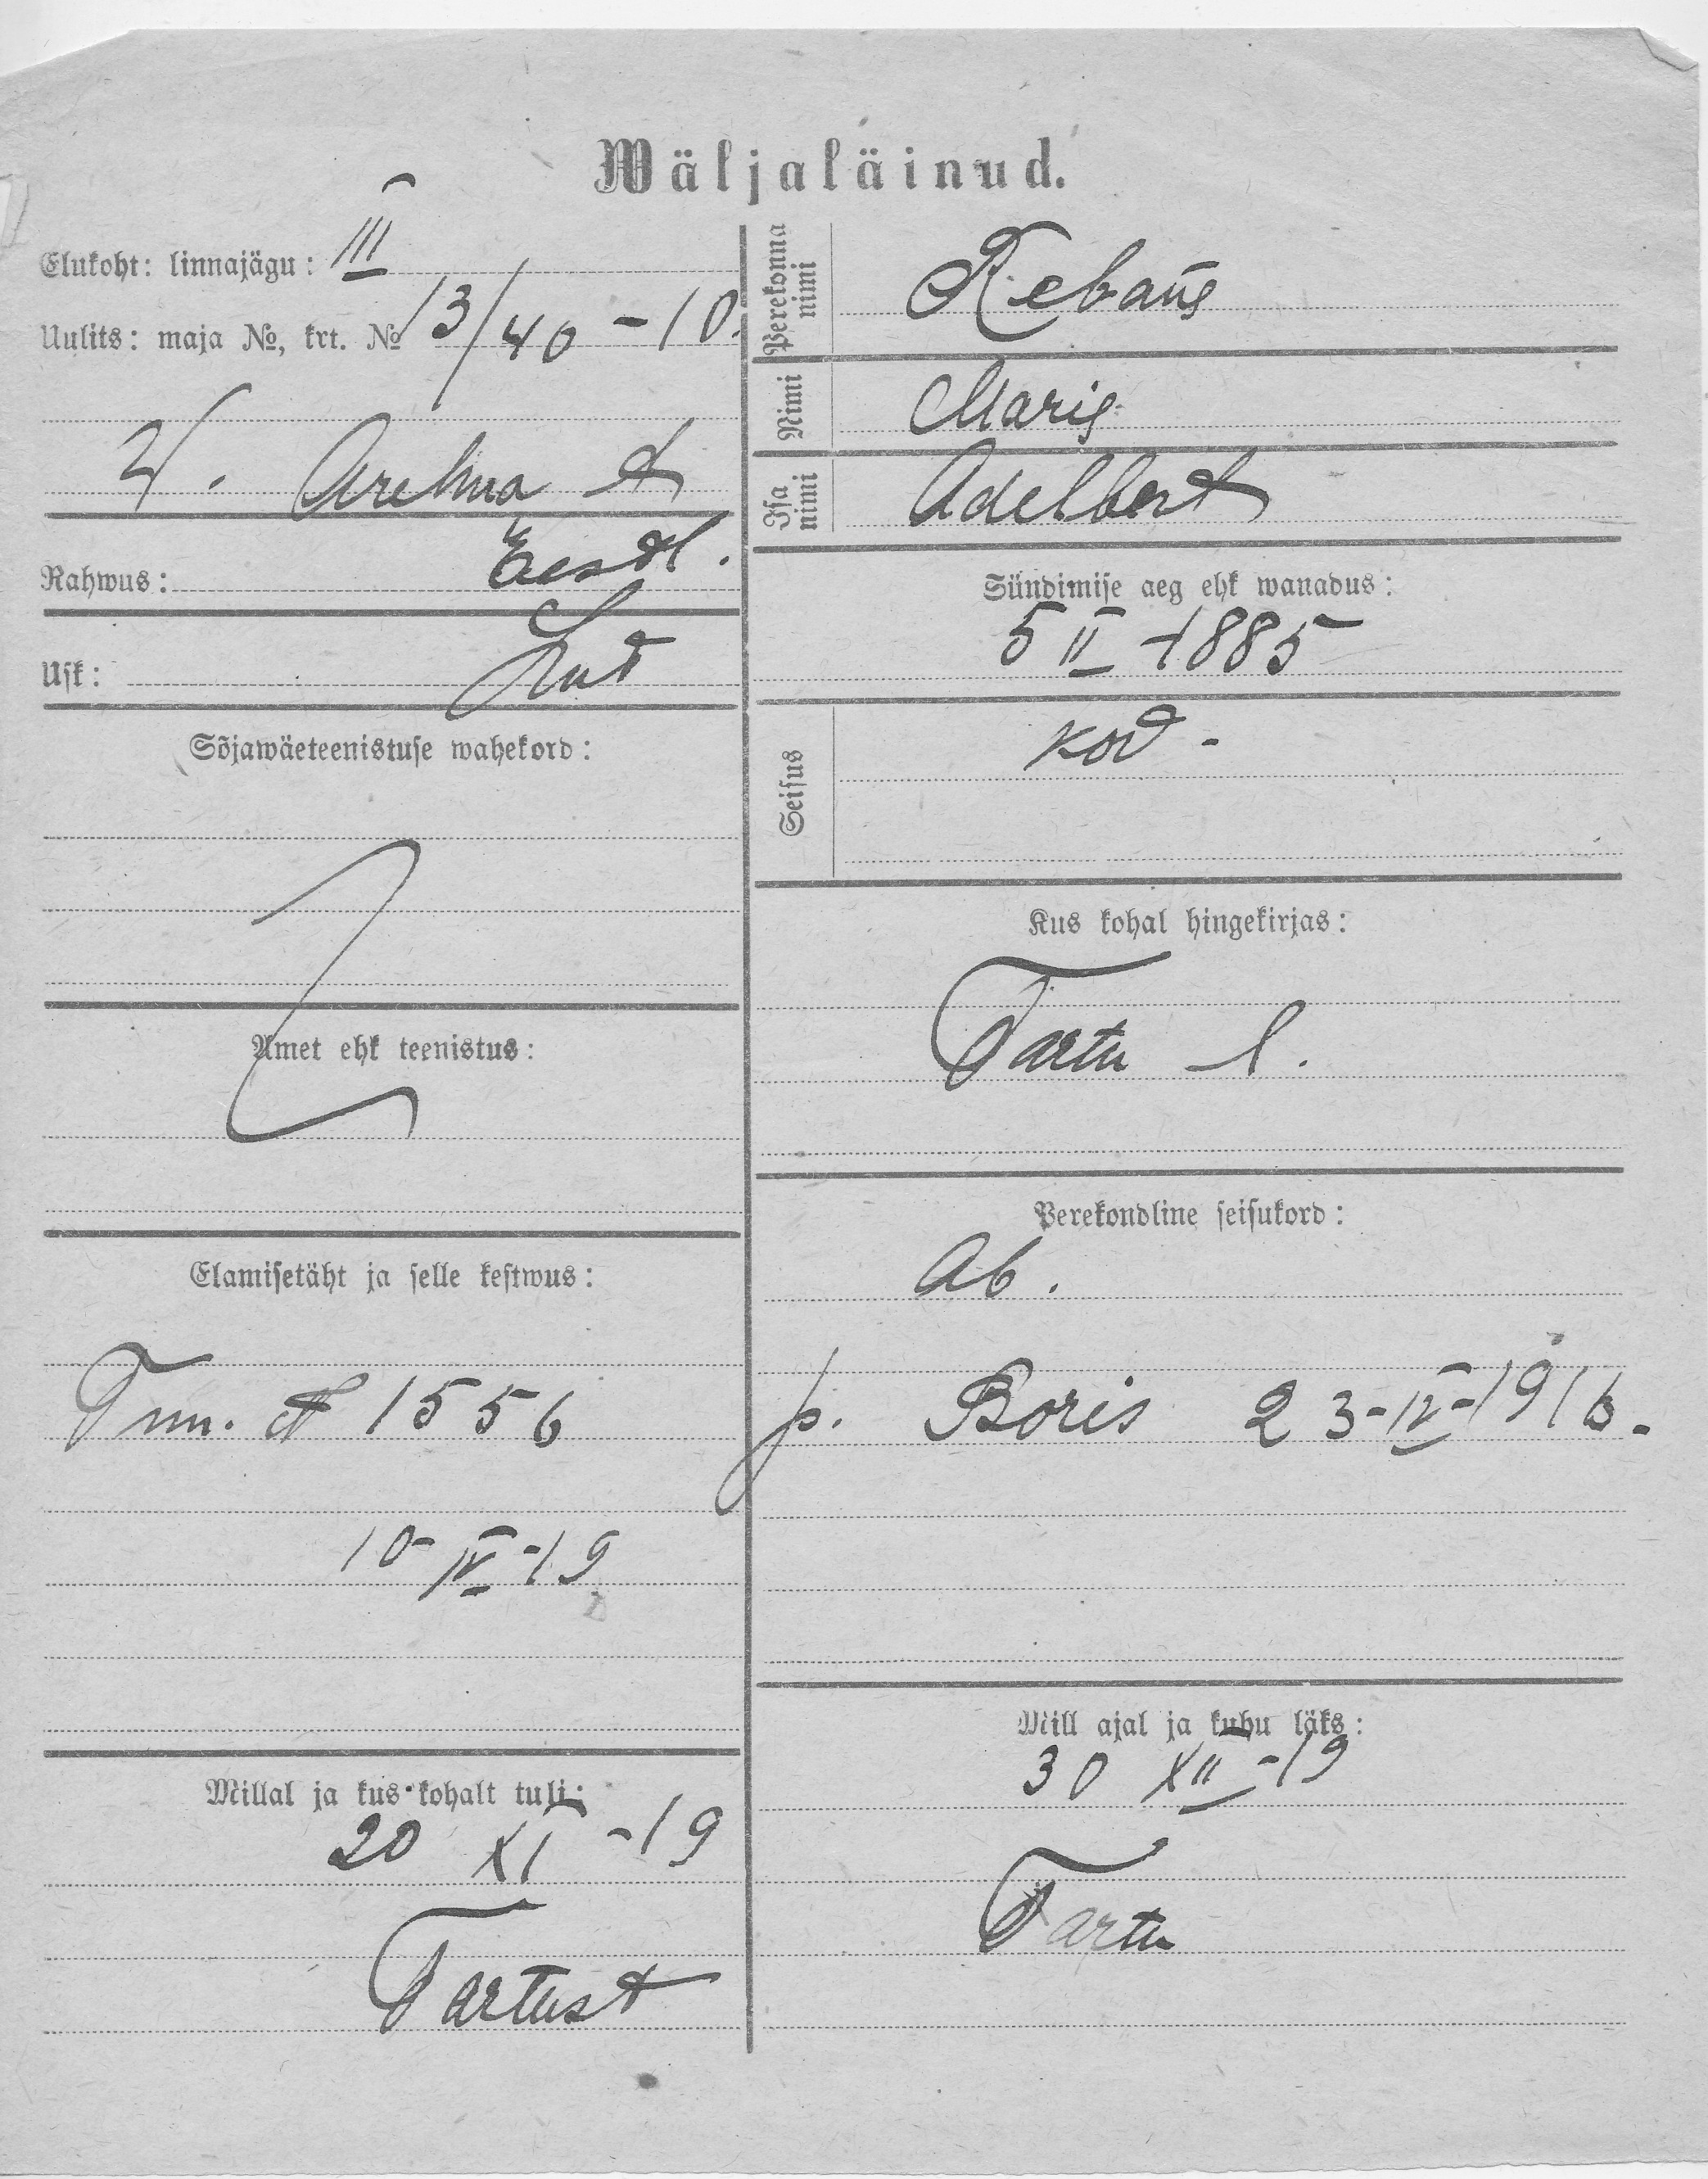 Wäljaläinud.
Elukoht: linnajägu: III
Uulits: maja №, krt. № 13/40 - 10.
Rahwus: Eestl.
Usk: Lut
Sõjawäeteenistuse wahekord:
Amet ehk teenistus:
Elamisetäht ja selle kestwus:
Tun. № 1556
10-IV-19
Millal ja kus kohalt tuli:
20 XI -19
Tartust
Perekonna nimi
Nimi
Adelbert
Isa nimi
Sündimise aeg ehk wanadus:
5 II 1885
Seisus
kod-
Kus kohal hingekirjas:
Tartu l.
Perekondline seisukord:
Ab.
p. Boris 23-IV-1916.
Mill ajal ja kuhu läks:
30 XII -19
Tartu